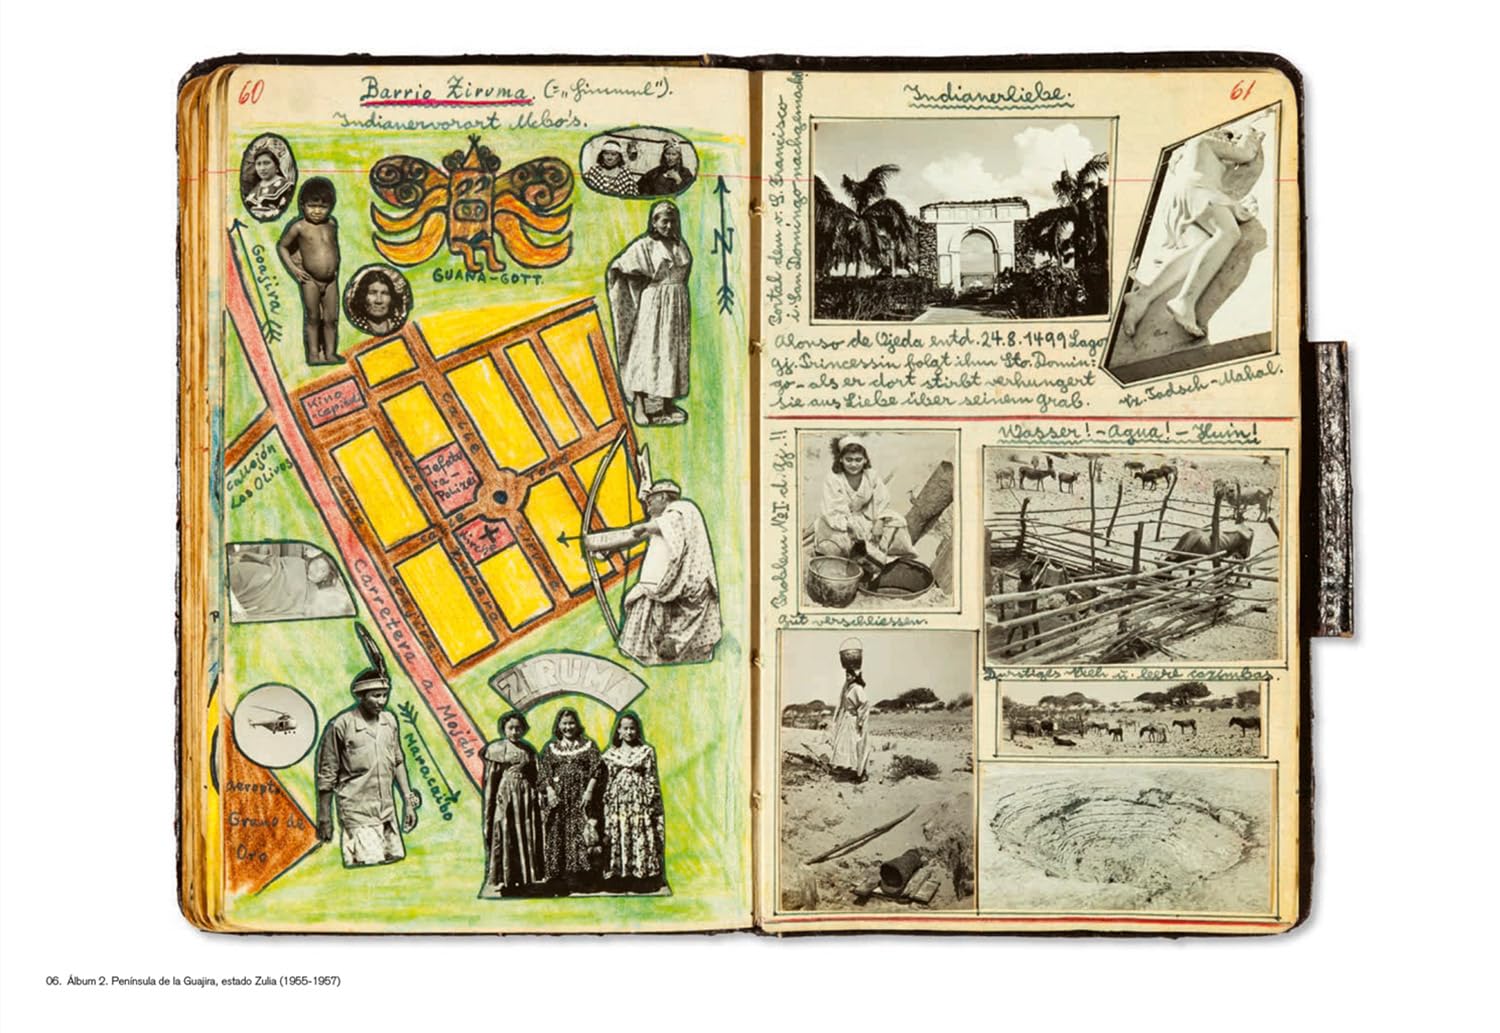 60
Barrio Ziruma. (=„Himmel").
Indianervorort Mcbo's.
GUANA-GOTT.
N
Goajira
Kino
Capitol
Callejón
Los Olivos
Calle
Jefatu
ra-
Polizei
Calle
Amparo
Goajira
Carretera a Moján
ZIRUMA
Maracaibo
aeropto.
Grano de
Oro
61
Indianerliebe.
Portal dem v. S. Francisco
i. San Domingo nachgemacht
Alonso de Ojeda entd. 24.8.1499 Lago
gj. Princessin folgt ihm Sto. Domin:
go - als er dort stirbt verhungert
sie aus Liebe über seinem grab.
Tadsch-Mahal.
Problem №I. d. gj.!!
Wasser! - Agua! - Huin!
gut verschliessen.
Durstiges Vieh u. leere cazimbas.
06. Álbum 2. Península de la Guajira, estado Zulia (1955-1957)